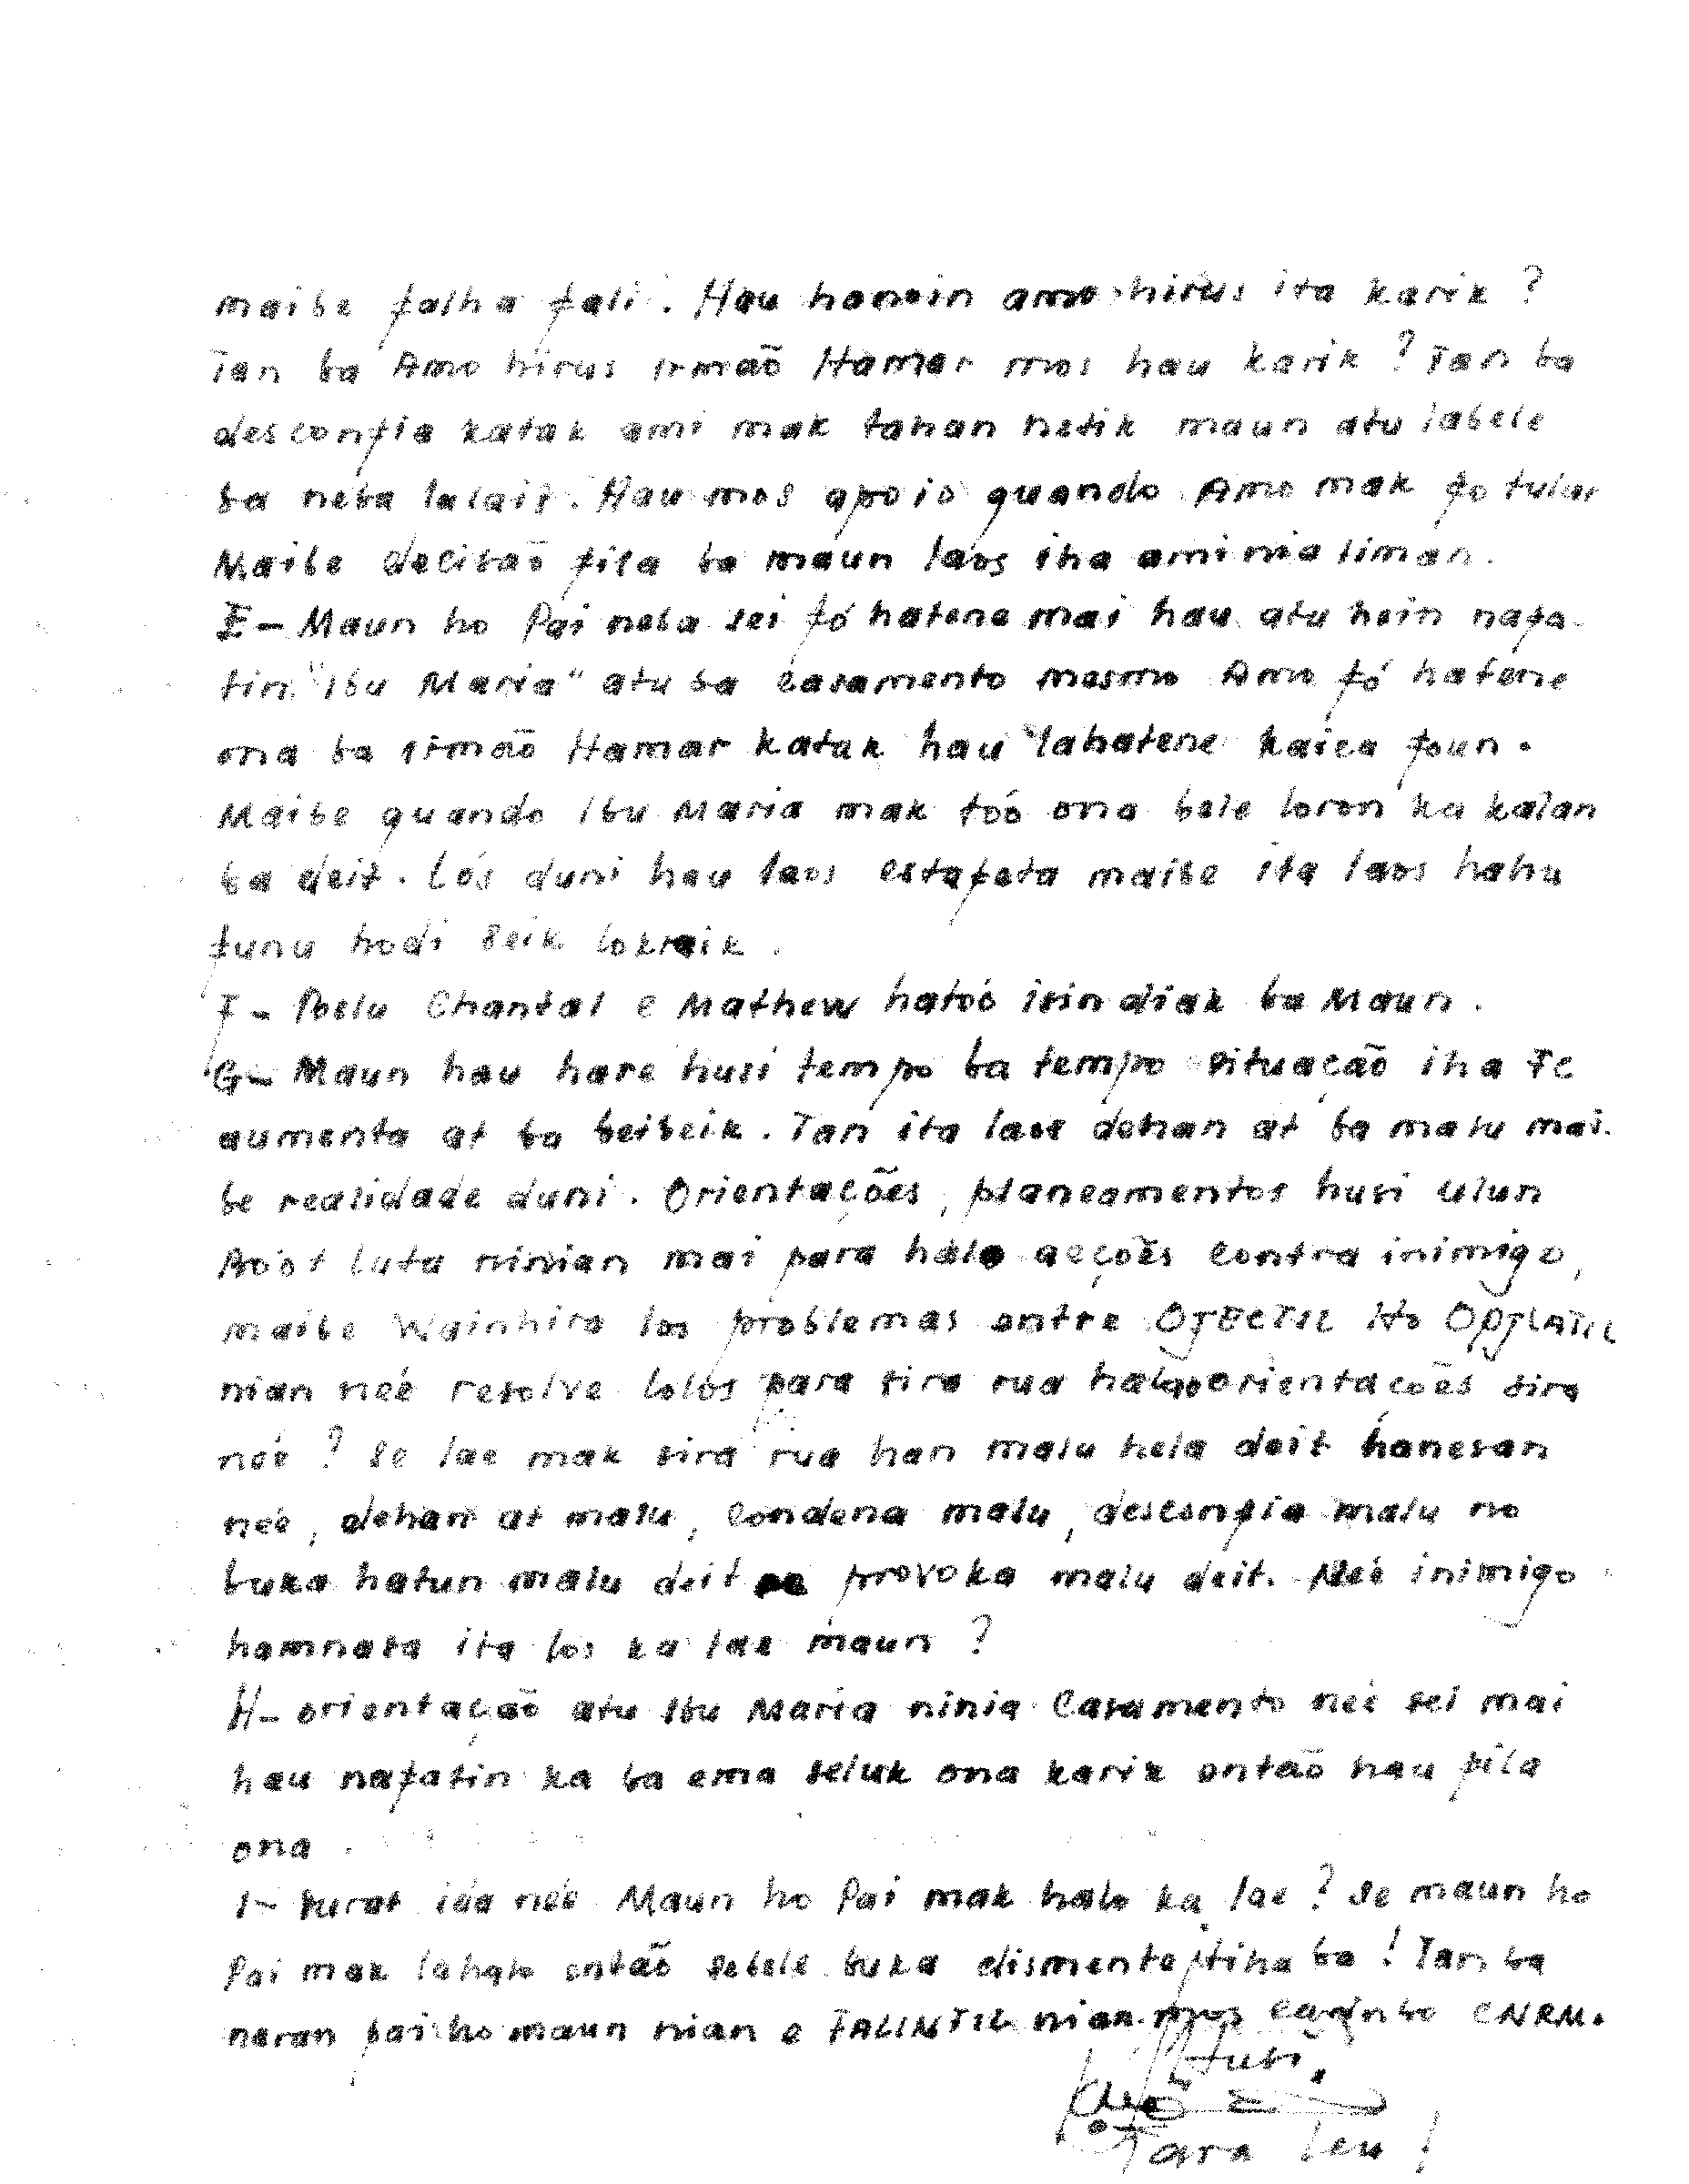 maibe falha fali. Hau hanoin amo hirus ita karik?
Tan ba Amo hirus irmaõ Hamar mos hau karik? Tan ba
desconfia katak ami mak tahan netik maun atu labele
ba neba lalais. Hau mos apoio quando Amo mak fo tulur
Maibe decisaõ fila ba maun laos iha ami nia liman.
E- Maun ho Pai neba sei fó hatene mai hau atu hein nafa-
tin "Ibu Maria" atu ba casamento mesmo Amo fó hatene
ona ba irmaõ Hamar katak hau "lahatene kaiea foun.
Maibe quando Ibu Maria mak toó ona bele loron ka kalan
ba deit. Lós duni hau laos estafeta maibe ita laos hahu
funu hodi seik lokraik.
F- Poelu Chantal e Mathew hatoó isin diak ba Maun.
G- Maun hau hare husi tempo ba tempo situaçaõ iha TC
aumenta at ba beibeik. Tan ita laos dehan at ba malu mai-
be realidade duni. Orientaçoẽs, planeamentos husi ulun
Boót luta ninian mai para halo acçoẽs contra inimigo,
maibe Wainhira los problemas entre OJECTIL Ho OPJLATIL
nian neé resolve lolós para sira rua halao orientaçoẽs sira
neé? Se lae mak sira rua han malu hela deit hanesan
neé, dehan at malu, condena malu, desconfia malu no
buka hatun malu deit provoka malu deit. Neé inimigo
hamnasa ita los ka lae maun?
H- orientaçaõ atu Ibu Maria ninia Casamento neé sei mai
hau nafatin ka ba ema seluk ona karik entaõ hau fila
ona.
I- surat ida neé Maun ho Pai mak halo ka lae? Se maun ho
Pai mak lahalo entaõ sebele buka dismente tiha ba! Tan ba
naran pai ho maun nian e FALINTIL nian mos CNRM.
Tara leu!